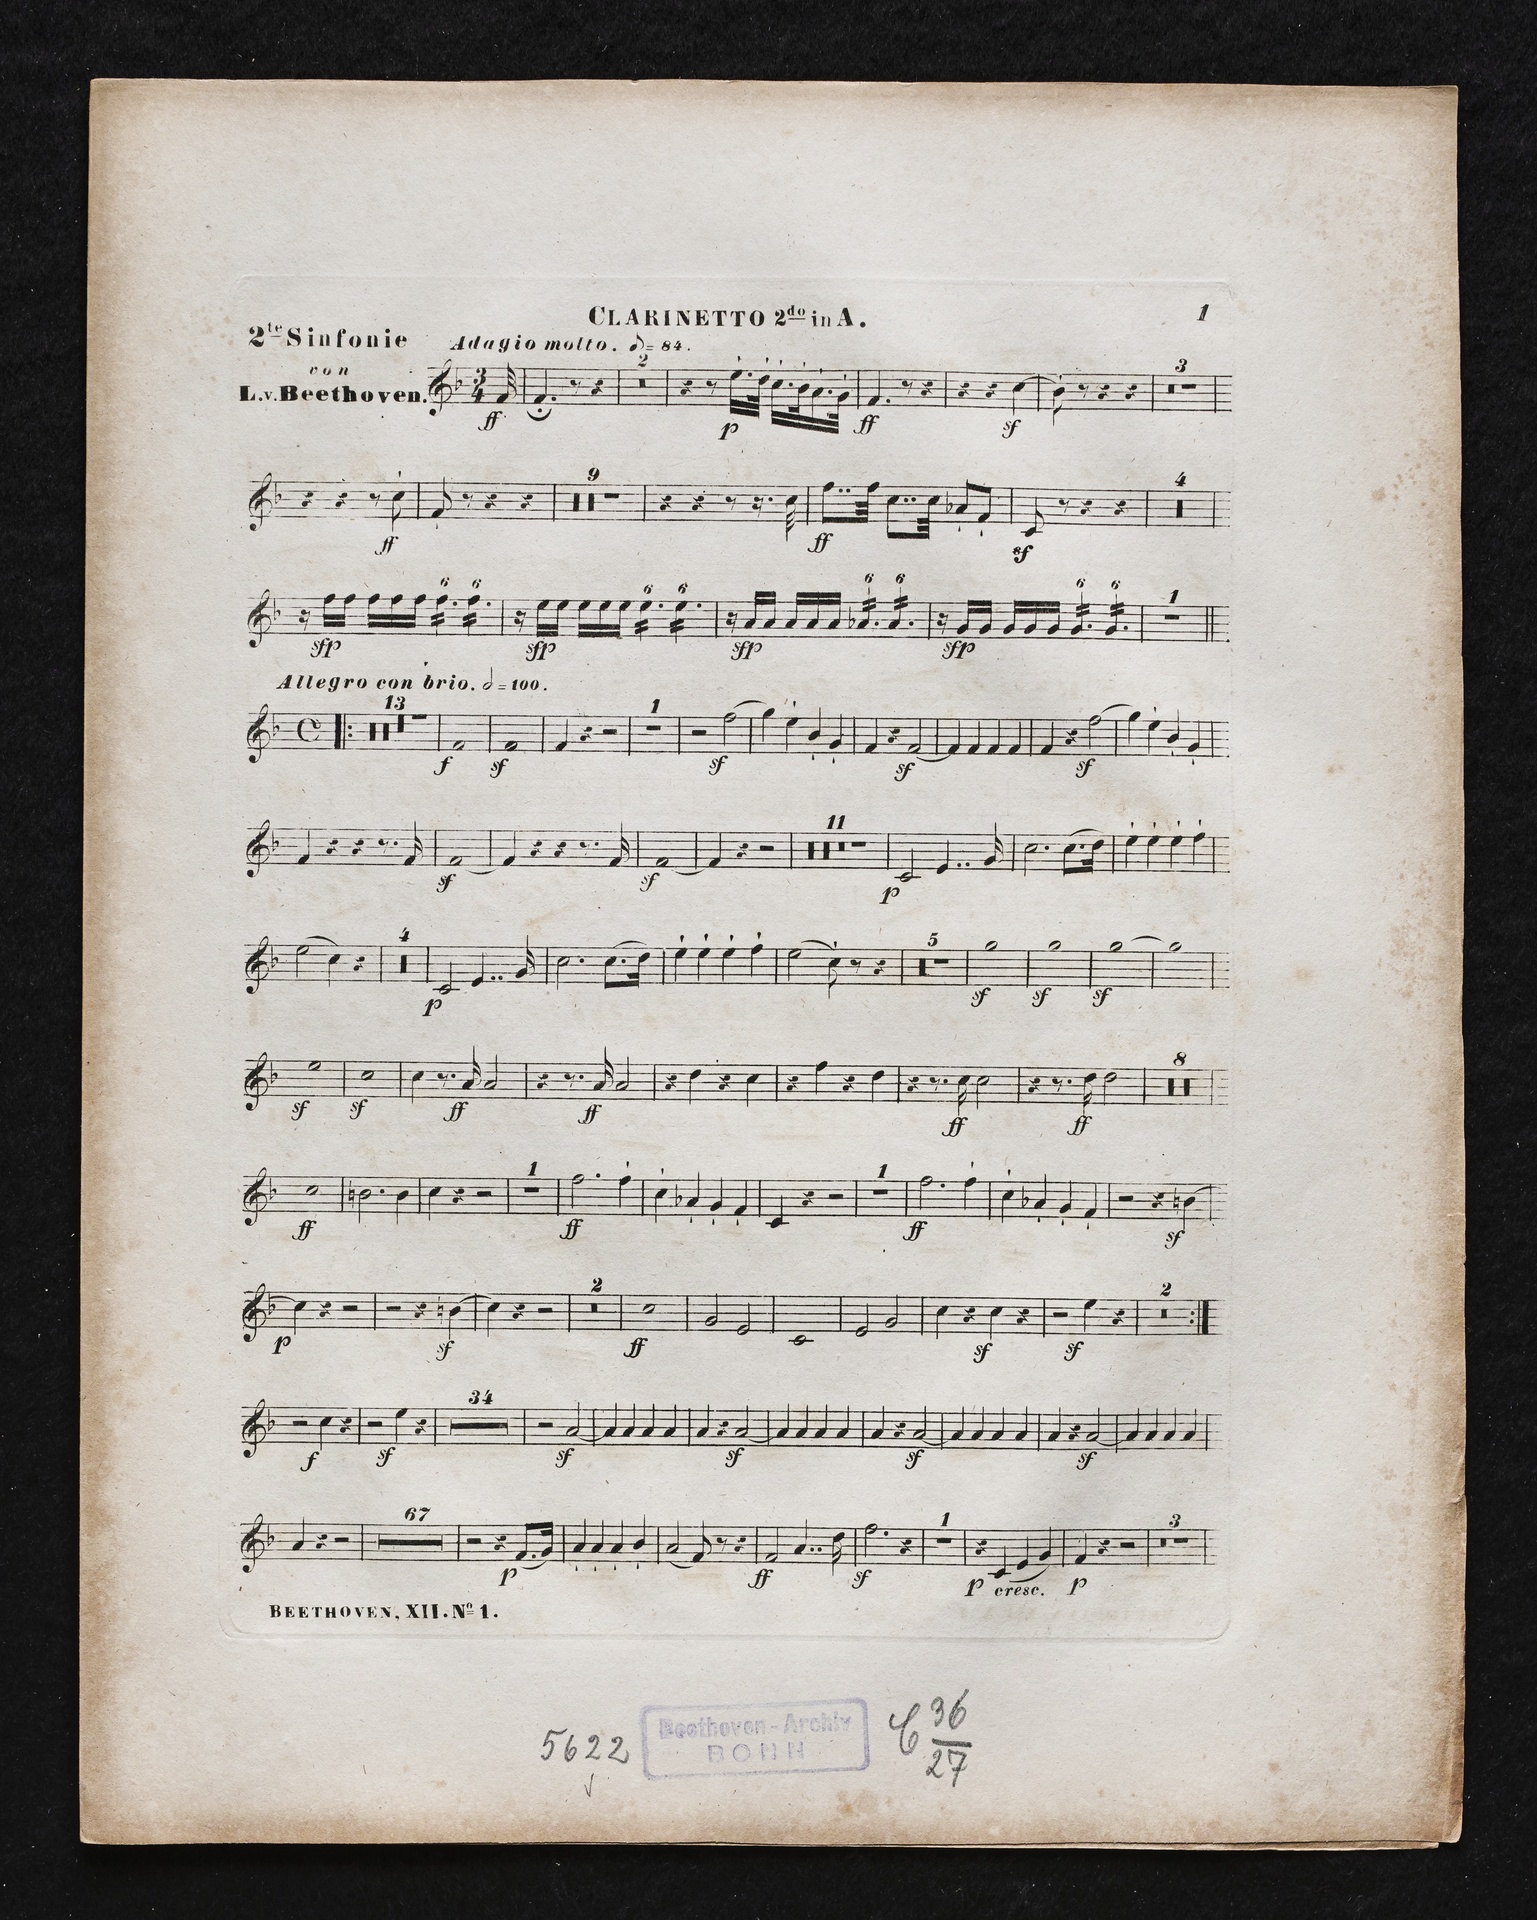 CLARINETTO 2do in A.
1
2te Sinfonie
von
L.v.Beethoven.
Adagio molto. ♪= 84.
3
4
2
3
ff
p
ff
sf
9
4
ff
ff
sf
6 6 6 6 6 6 6 6 1
sfp sfp sfp sfp
Allegro con brio. 𝅗𝅥 = 100.
13 1
f sf sf sf sf
11
sf sf p
4 5
p sf sf sf
8
sf sf ff ff ff ff
1 1
ff ff ff sf
2 2
p sf ff sf sf
34
f sf sf sf sf sf
67 1 3
p ff sf p cresc. p
BEETHOVEN, XII. No 1.
5622
Beethoven-Archiv
BONN
C 36
27